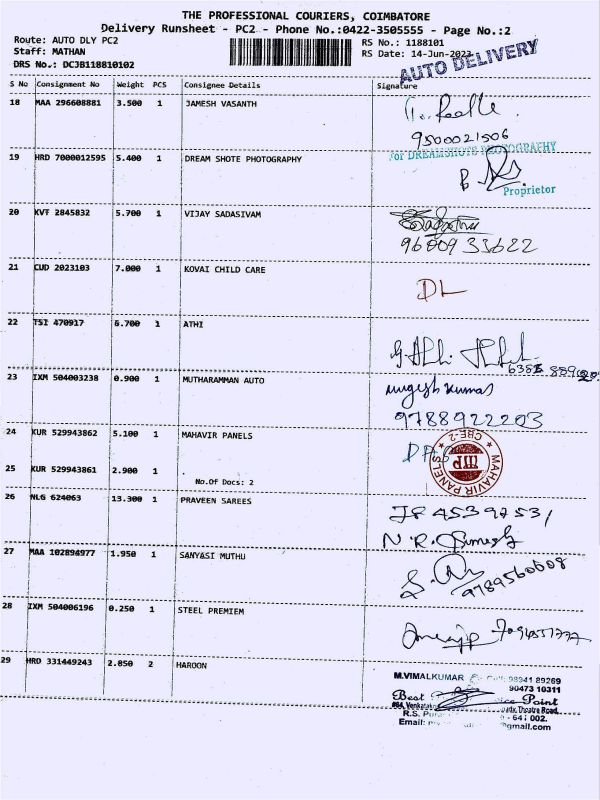 THE PROFESSIONAL COURIERS, COIMBATORE
Delivery Runsheet - PC2 - Phone No.:0422-3505555 - Page No.:2
Route: AUTO DLY PC2 RS No.: 1188101
Staff: MATHAN RS Date: 14-Jun-2023
DRS No.: DC3B118810102 AUTO DELIVERY
S No Consignment No Weight PCS Consignee Details Signature
18 MAA 296608881 3.500 1 JAMESH VASANTH
9500021506
19 HRD 7000012595 5.400 1 DREAM SHOTE PHOTOGRAPHY For DREAMSHOTE PHOTOGRAPHY
Proprietor
20 KVT 2845832 5.700 1 VIJAY SADASIVAM
96009 33622
21 CUD 2023103 7.000 1 KOVAI CHILD CARE DL
22 TSI 470917 6.700 1 ATHI
23 IXM 504003238 0.900 1 MUTHARAMMAN AUTO mugesh kumar
9788922203
24 KUR 529943862 5.100 1 MAHAVIR PANELS
MAHAVIR PANELS CBE-2 MP
25 KUR 529943861 2.900 1
No.Of Docs: 2
26 NLG 624063 13.300 1 PRAVEEN SAREES
27 MAA 102894977 1.950 1 SANYASI MUTHU
9789560608
28 IXM 504006196 0.250 1 STEEL PREMIEM
29 HRD 331449243 2.850 2 HAROON
M.VIMALKUMAR 98941 89269
90473 10311
Best Point
Theatre Road,
R.S. 641 002.
Email: @gmail.com